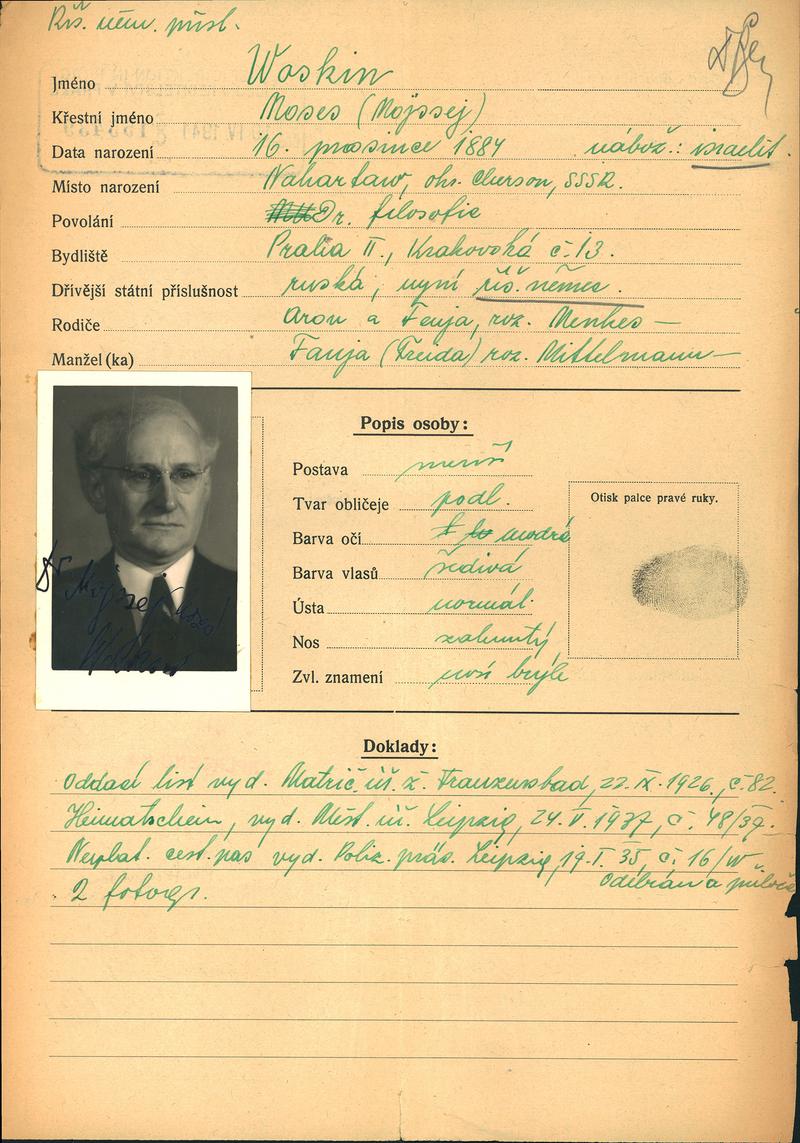 Říš. něm. přísl.
Jméno Woskin
Křestní jméno Moses (Mojssej)
Data narození 16. prosince 1884 nábož.: israelit.
Místo narození Nahartaw, okr. Cherson, SSSR.
Povolání Dr. filosofie
Bydliště Praha II., Krakovská č. 13.
Dřívější státní příslušnost ruská, nyní říš. němec.
Rodiče Aron a Fenja, roz. Menhes —
Manžel (ka) Fanja (Freida) roz. Mittelmann —
Popis osoby:
Postava menší
Tvar obličeje podl.
Barva očí modrá
Barva vlasů šedivá
Ústa normál.
Nos zahnutý
Zvl. znamení nosí brýle
Otisk palce pravé ruky.
Dr Mojssej Moses
Doklady:
Oddací list vyd. Matrič. úř. ž. Franzensbad, 22. IX. 1926., č. 82.
Heimatschein, vyd. Měst. úř. Leipzig, 24. V. 1937, č. 48/37.
Neplat. cest. pas vyd. Poliz. präs. Leipzig, 19. I. 35, č. 16/W
Odebrán a přilož.
2 fotogr.